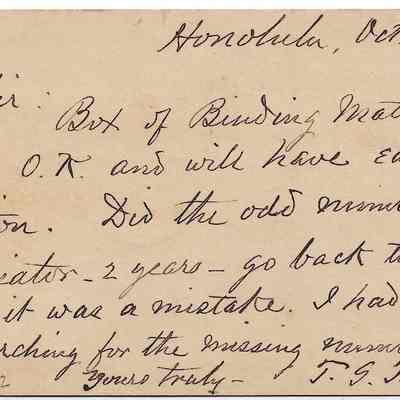 Honolulu, Oct
ir:
Box of Binding Mat
O.K. and will have ea
ion. Did the odd numer
iator - 2 years - go back t
it was a mistake. I had
rching for the missing numer
Yours truly - T. G.